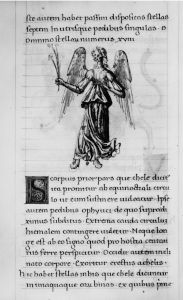 ste autem habet passim dispositas stellas
septem in utrisque pedibus singulas. s
omnino stellarum numerus. xviii
Scorpius prior pars quae chele dici
tur, promitur ab equinoctiali circu
lo ut eum sustinere videatur. Ipse
autem pedibus ophyuci de quo supra dix
imus subditus. Extrema cauda circulum
hiemalem contingere videtur. Neque lon
ge est ab eo signo quod pro hostia centau
rus ferre perspicitur. Occidit autem incli
nato corpore. Exoritur erectus a chelis.
hic habet stellas in his que chele dicuntur
in unaquaque earum binas. ex quibus prime